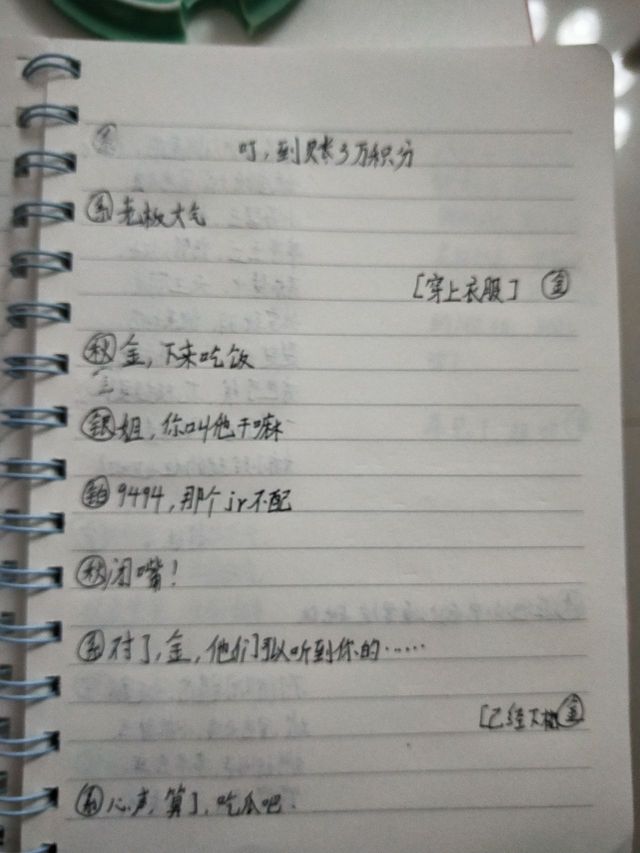 叮，到账3万积分
㊂系 老板大气
[穿上衣服] 金
秋 金，下来吃饭
银 姐，你叫他干嘛
铂 9494，那个jr不配
秋 闭嘴！
系 对了，金，他们可以听到你的……
[已经下楼 金
系 心声，算了，吃瓜吧.